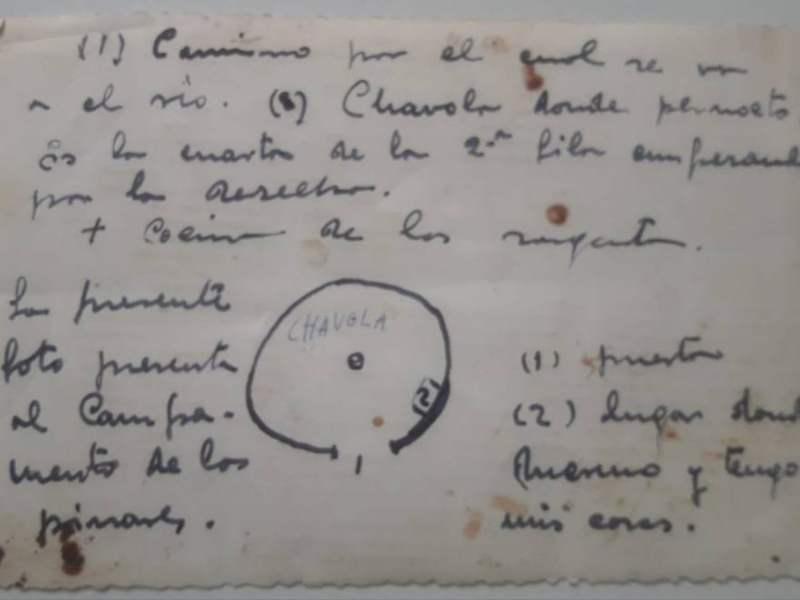 (1) Camino por el cual se va
a el río. (2) Chavola donde pernocto
es la cuarta de la 2ª fila empezando
por la derecha.
+ Cocina de los sargentos.
La presente
foto presenta
al Campa-
mento de los
pinares.
CHAVOLA
(2)
1
(1) puerta
(2) lugar donde
duermo y tengo
mis cosas.